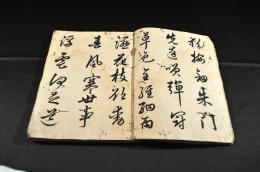 猶按劍朱門
先達咲彈冠
草色全經細雨
濕花枝欲動
春風寒世事
浮雲何足問